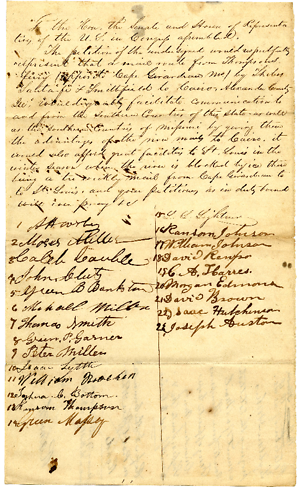 To the Hon. the Senate and House of Representa
tives of the U.S. in Congress assembled.
The petition of the undersigned would respectfully
represent that a mail route from Thompsons
Ferry (opposite Cape Girardeau Mo) by Thebes
and Smithfield to Cairo, Alexander County
Ills. would greatly facilitate communication to
and from the Southern Counties of this state, as well
as the Southern Counties of Missouri by giving them
the advantages of the now mail to Cairo, it
would also afford great facilities to St. Louis in the
winter season when the river is blocked by ice there
being a mail from Cape Girardeau to
St. Louis; and your petitioners as in duty bound
will ever pray &c
1
2 Moses Miller
3 Caleb
4 John Clutz
5 Green B Bankston
6 Michael Miller
7 Thomas Smith
8 Green P. Garner
9 Peter Miller
10 Isaac
11 William
12 Joshua C. Bottom
13 Ransom Thompson
14 Green Massey
15
16 Ransom Johnson
17 William Johnson
18 David
19 C. A.
20 Morgan Edmons
21 David Brown
22 Isaac Hutchinson
23 Joseph Huston